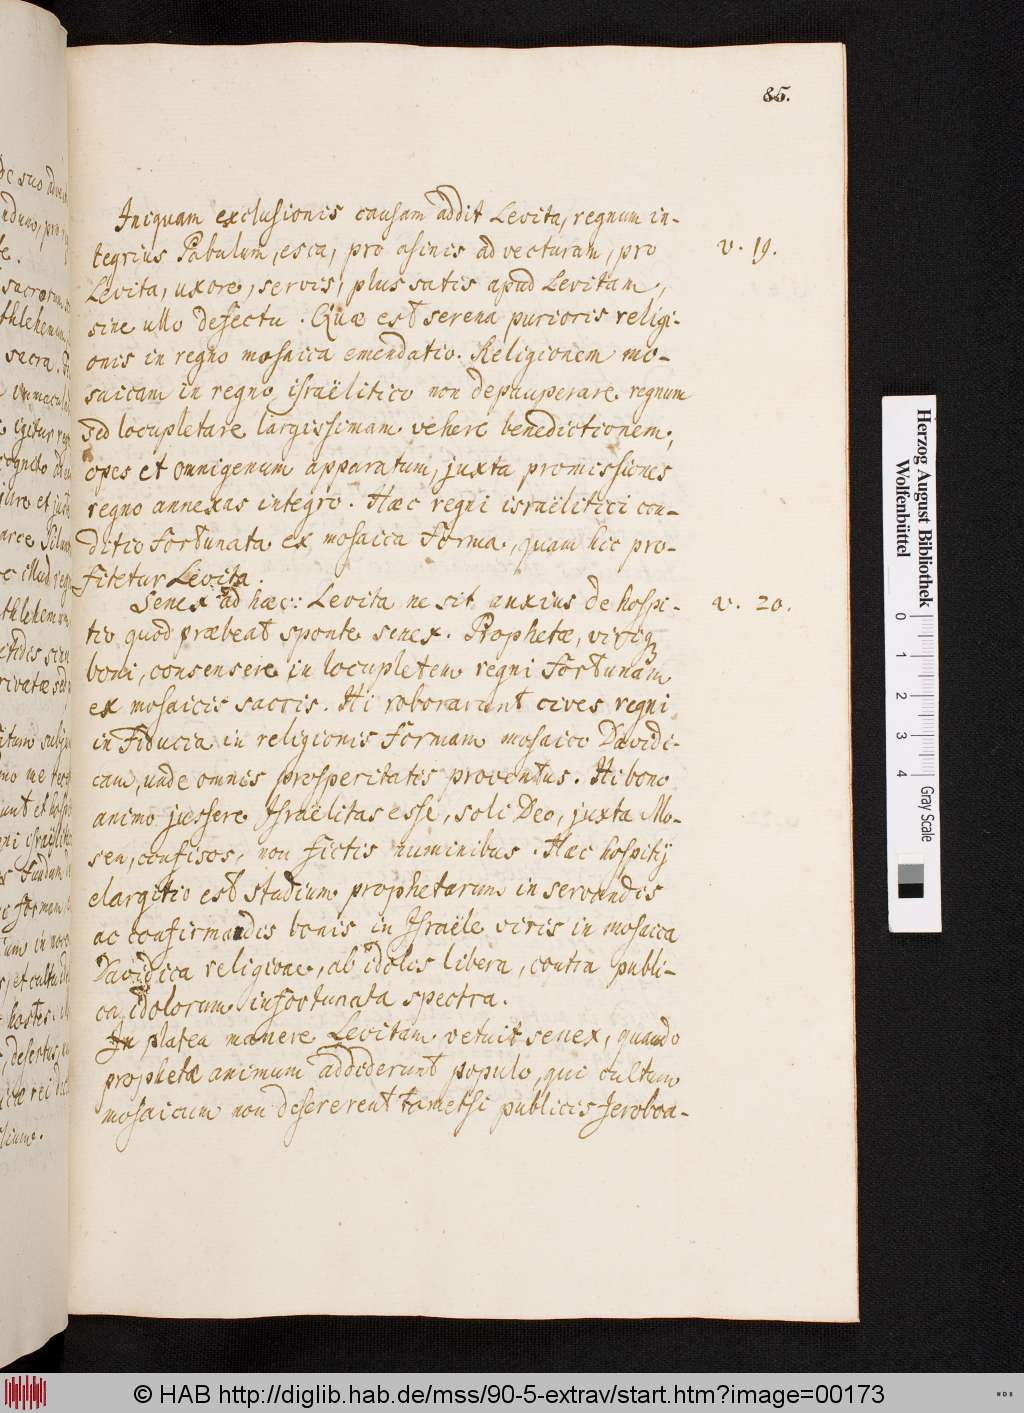 85.
Iniquam exclusionis causam addit Levita, regnum in-
tegrius Pabulum, esca, pro asinis ad vecturam, pro
v. 19.
Levita, uxore, servis, plus satis apud Levitam,
sine ullo defectu. Quæ est serena purioris religi-
onis in regno mosaica emendatio. Religionem mo-
saicam in regno israëlitico non depauperare regnum
sed locupletare largissimam vehere benedictionem,
opes et omnigenum apparatum, juxta promissiones
regno annexas integro. Hæc regni israëlitici con-
ditio fortunata ex mosaica forma, quam hic pro-
fitetur Levita.
Senex ad hæc: Levita ne sit anxius de hospi-
v. 20.
tio quod præbeat sponte senex. Prophetæ, viriq
boni, consensere in locupletem regni fortunam
ex mosaicis sacris. Hi roborarunt cives regni
in fiducia in religionis formam mosaico Davidi-
cam, unde omnis prosperitatis proventus. Hi bono
animo jussere Israëlitas esse, soli Deo, juxta Mo-
sen, confisos, non fictis numinibus. Hæc hospitij
elargitio est studium prophetarum in servandis
ac confirmandis bonis in Israële viris in mosaica
Davidica religione, ab idolis libera, contra publi-
ca idolorum infortunata spectra.
In platea manere Levitam vetuit senex, quando
prophetæ animum addiderunt populo, qui cultum
mosaicum non desererent tametsi publicis Jeroboa-
Herzog August Bibliothek
Wolfenbüttel
0 1 2 3 4
Gray Scale
© HAB http://diglib.hab.de/mss/90-5-extrav/start.htm?image=00173